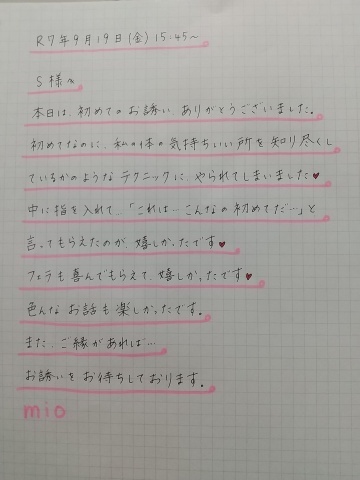 R7年9月19日(金)15:45〜
S様へ
本日は、初めてのお誘いありがとうございました。
初めてなのに、私の体の気持ちいい所を知り尽くし
ているかのようなテクニックに、やられてしまいました♥
中に指を入れて、「これは…こんなの初めてだ…」と
言ってもらえたのが、嬉しかったです♥
フェラも喜んでもらえて、嬉しかったです♥
色んなお話も楽しかったです。
また、ご縁があれば…
お誘いをお待ちしております。
mio